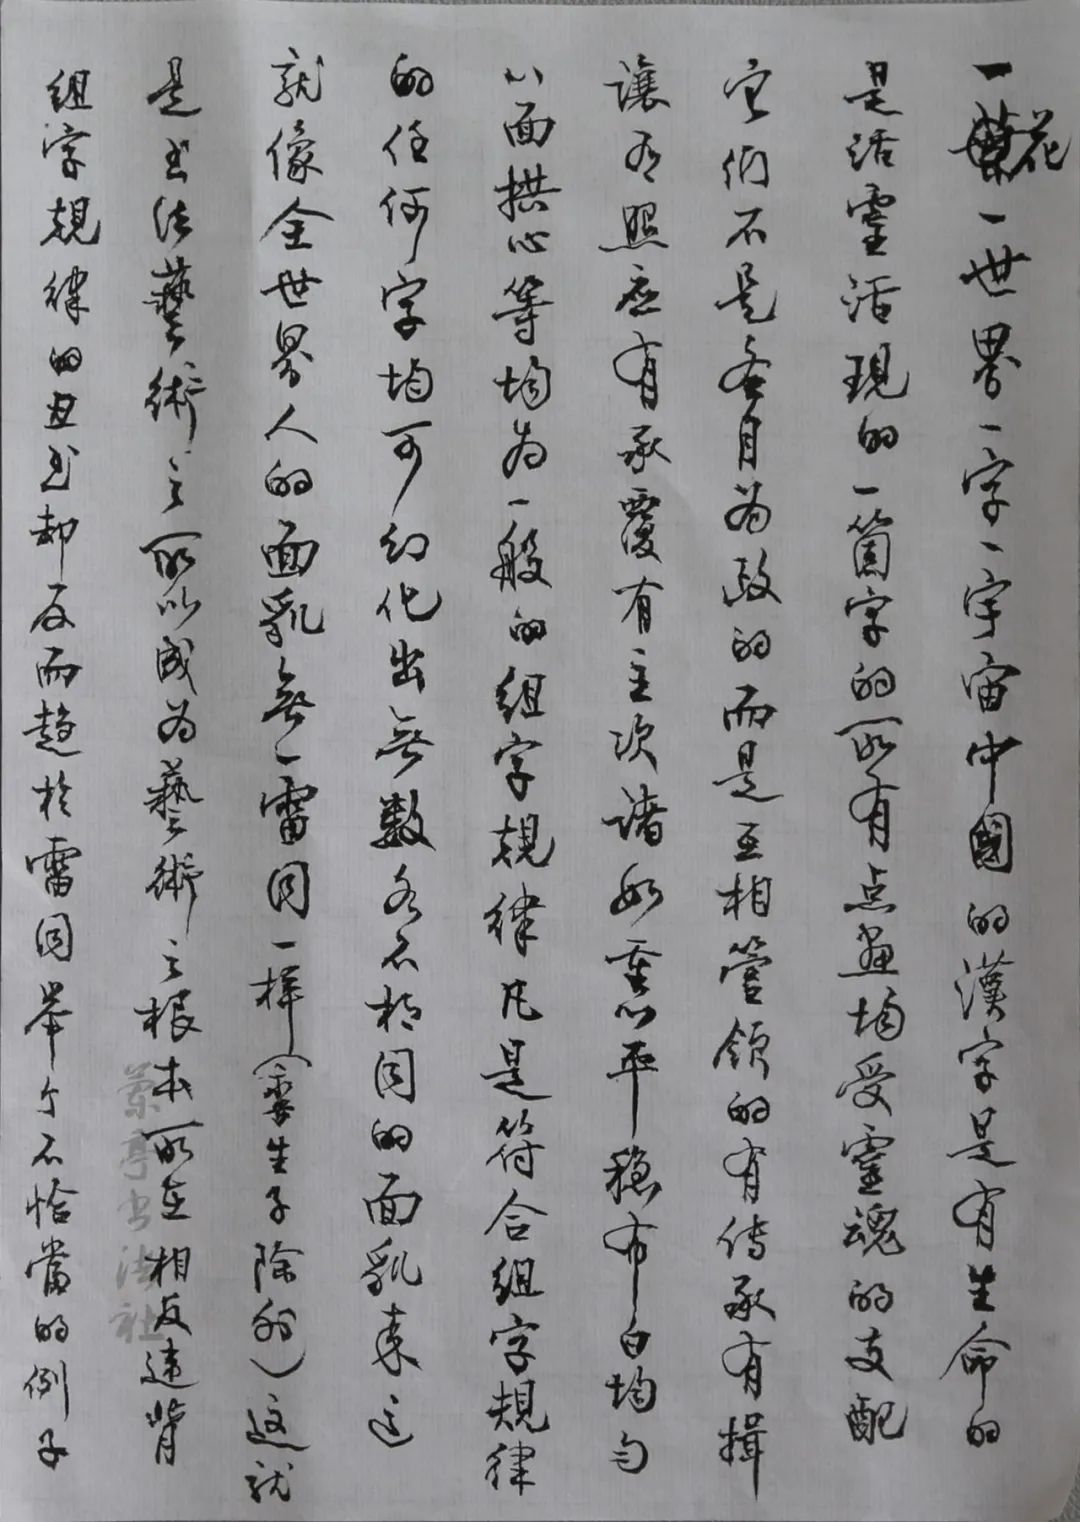 一花一世界一字一宇宙中國的漢字是有生命的
是活靈活現的一箇字的所有点畫均受靈魂的支配
它们不是各自为政的而是互相管領的有传承有揖
讓有照应有承覆有主次諸如重心平穩布白均匀
八面拱心等均为一般的组字規律凡是符合组字規律
的任何字均可幻化出無數各不相同的面乳来这
就像全世界人的面乳無一雷同一樣（孿生子除外）这就
是书法藝術之所以成为藝術之根本所在相反違背
组字規律的丑书却反而趋於雷同舉个不恰當的例子
蘭亭书法社